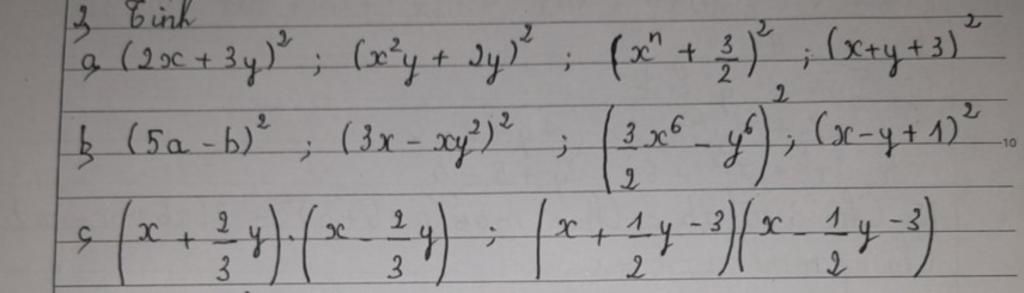 3, Tính
a, (2x + 3y)² ; (x²y + 2y)² ; (xⁿ + 3/2)² ; (x+y+3)²
b, (5a - b)² ; (3x - xy²)² ; (3/2 x⁶ - y⁶)² ; (x-y+1)²
c, (x + 2/3 y).(x - 2/3 y) ; (x + 1/2 y - 3)(x - 1/2 y - 3)
10